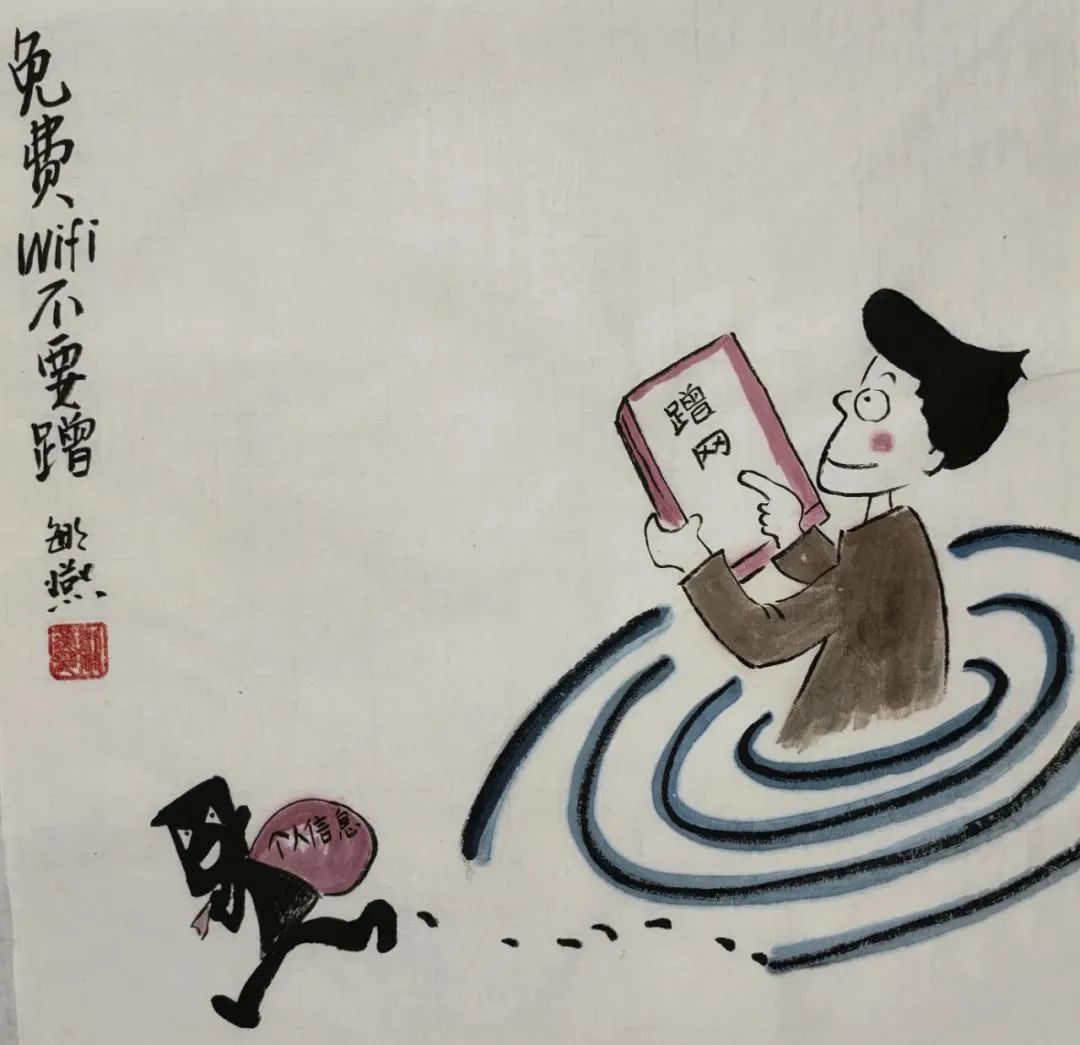 免費Wifi不要蹭
敏燕
蹭网
个人信息